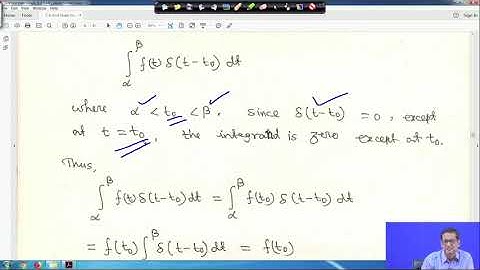 Sign In
∫_α^β f(t) δ(t-t₀) dt
where α < t₀ < β, since δ(t-t₀) = 0, except
at t = t₀, the integrand is zero except at t₀.
Thus,
∫_α^β f(t) δ(t-t₀) dt = ∫_α^β f(t₀) δ(t-t₀) dt
= f(t₀) ∫_α^β δ(t-t₀) dt = f(t₀)